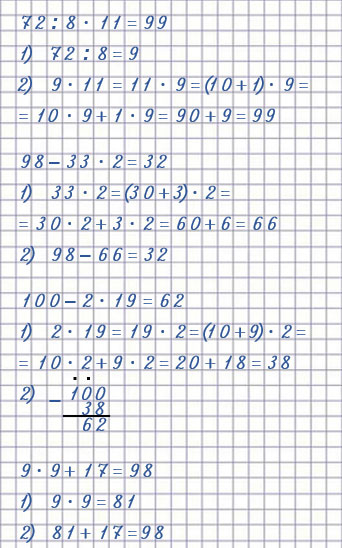 72 : 8 · 11 = 99
1) 72 : 8 = 9
2) 9 · 11 = 11 · 9 = (10 + 1) · 9 =
= 10 · 9 + 1 · 9 = 90 + 9 = 99
98 – 33 · 2 = 32
1) 33 · 2 = (30 + 3) · 2 =
= 30 · 2 + 3 · 2 = 60 + 6 = 66
2) 98 – 66 = 32
100 – 2 · 19 = 62
1) 2 · 19 = 19 · 2 = (10 + 9) · 2 =
= 10 · 2 + 9 · 2 = 20 + 18 = 38
2) – 100
38
62
9 · 9 + 17 = 98
1) 9 · 9 = 81
2) 81 + 17 = 98